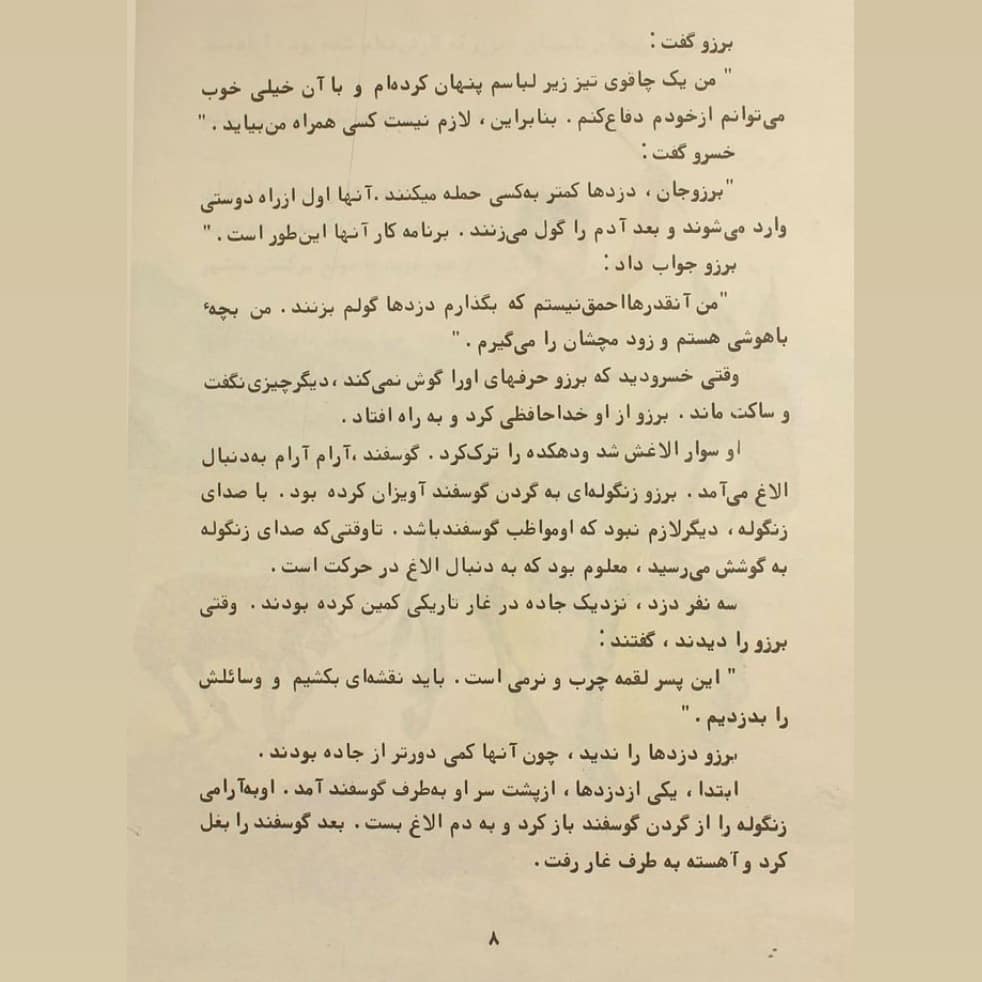 برزو گفت :
" من یک چاقوی تیز زیر لباسم پنهان کرده‌ام و با آن خیلی خوب
می‌توانم ازخودم دفاع‌کنم . بنابراین ، لازم نیست کسی همراه من‌بیاید . "
خسرو گفت :
"برزوجان ، دزدها کمتر به‌کسی حمله میکنند .آنها اول ازراه دوستی
وارد می‌شوند و بعد آدم را گول می‌زنند . برنامه کار آنها این‌طور است . "
برزو جواب داد :
"من آنقدرهااحمق‌نیستم که بگذارم دزدها گولم بزنند . من بچهٔ
باهوشی هستم و زود مچشان را می‌گیرم . "
وقتی خسرودید که برزو حرفهای اورا گوش نمی‌کند ،دیگرچیزی‌نگفت
و ساکت ماند . برزو از او خداحافظی کرد و به راه افتاد .
او سوار الاغش شد ودهکده را ترک‌کرد . گوسفند ،آرام آرام به‌دنبال
الاغ می‌آمد . برزو زنگوله‌ای به گردن گوسفند آویزان کرده بود . با صدای
زنگوله ، دیگرلازم نبود که اومواظب گوسفندباشد . تاوقتی‌که صدای زنگوله
به گوشش می‌رسید ، معلوم بود که به دنبال الاغ در حرکت است .
سه نفر دزد ، نزدیک جاده در غار تاریکی کمین کرده بودند . وقتی
برزو را دیدند ، گفتند :
" این پسر لقمه چرب و نرمی است . باید نقشه‌ای بکشیم و وسائلش
را بدزدیم . "
برزو دزدها را ندید ، چون آنها کمی دورتر از جاده بودند .
ابتدا ، یکی ازدزدها ، ازپشت سر او به‌طرف گوسفند آمد . اوبه‌آرامی
زنگوله را از گردن گوسفند باز کرد و به دم الاغ بست . بعد گوسفند را بغل
کرد و آهسته به طرف غار رفت .
۸